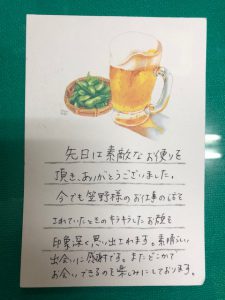 先日は素敵なお便りを
頂き、ありがとうございました。
今でも笠野様のお仕事のしばを
されていたときのキラキラしたお顔を
印象深く思い出されます。素晴らしい
出会いに感謝です。またどこかで
お会いできるのを楽しみにしております。